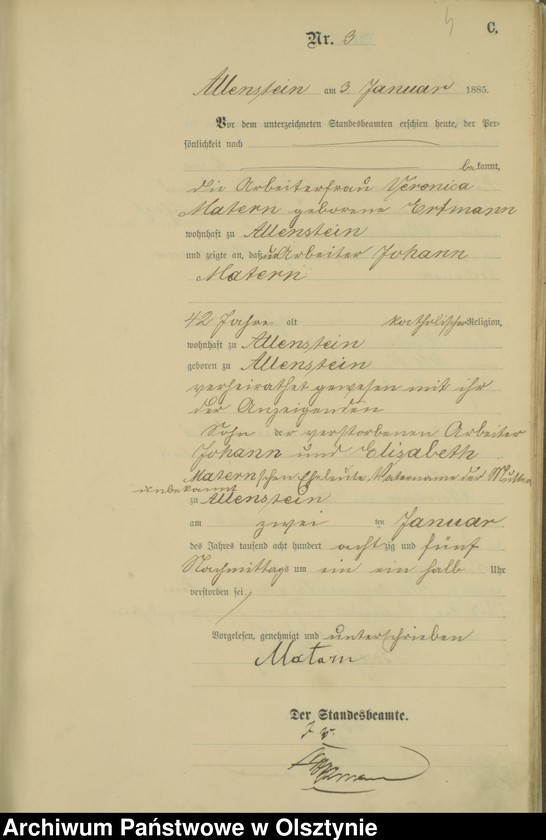 C.
Nr. 3
Allenstein am 3 Januar 1885.
Vor dem unterzeichneten Standesbeamten erschien heute, der Per-
sönlichkeit nach
bekannt,
die Arbeiterfrau Veronica
Matern geborene Ertmann
wohnhaft zu Allenstein
und zeigte an, daß der Arbeiter Johann
Matern
42 Jahre alt katholischer Religion,
wohnhaft zu Allenstein
geboren zu Allenstein
verheirathet gewesen mit ihr
der Anzeigenden
Sohn er verstorbenen Arbeiter
Johann und Elisabeth
Matern'schen Eheleute, Vatername der Mutter
unbekannt
zu Allenstein
am zwei ten Januar
des Jahres tausend acht hundert acht zig und fünf
Nachmittags um ein ein halb Uhr
verstorben sei.
Vorgelesen, genehmigt und unterschrieben
Matern
Der Standesbeamte.
J. V.
Archiwum Państwowe w Olsztynie